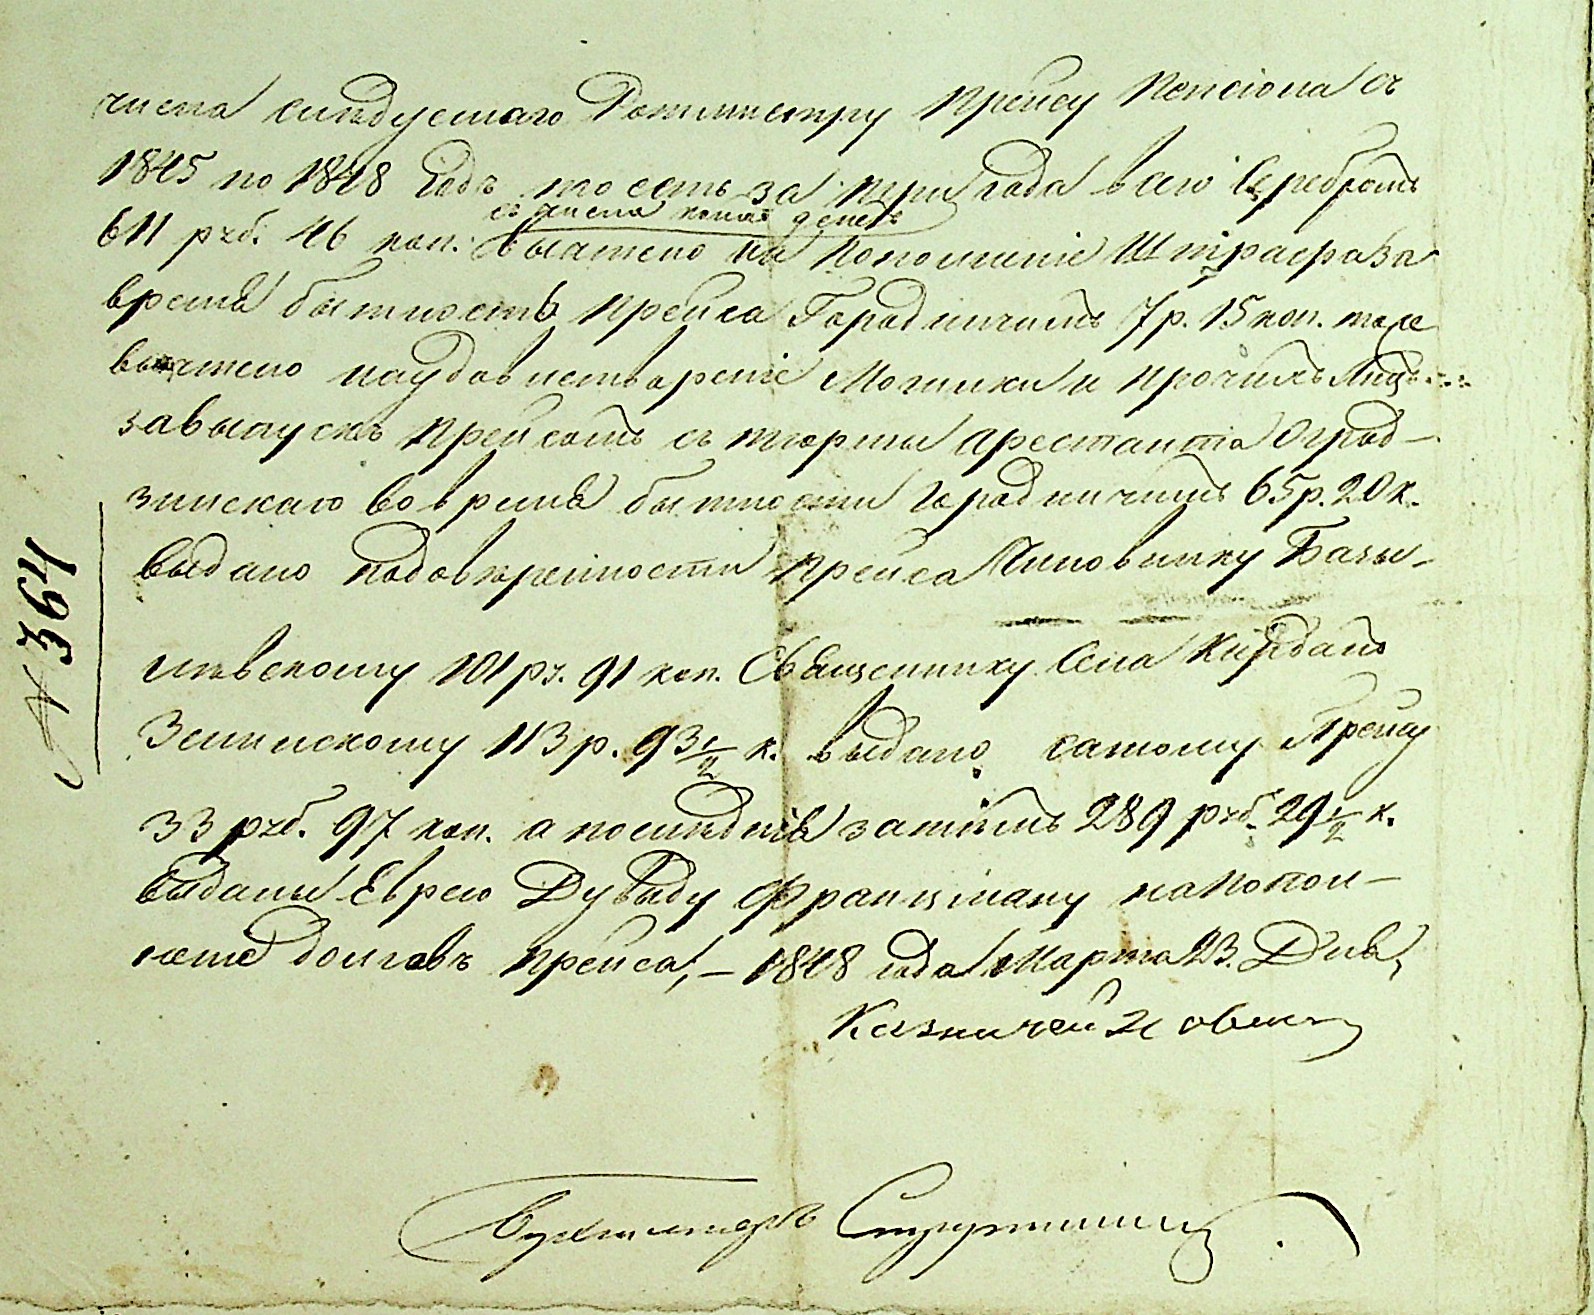 числа слѣдуемаго Ротмистру Прейсу Пенсіона съ
1845 по 1848 годъ то есть за три года всего Серебромъ
611 руб. 46 коп.
съ числа коихъ денегъ
вычтено на пополненіе Штрафа за
время бытность Прейса Городничимъ 7 р. 15 коп. тоже
вычтено на удовлетвореніе и прочихъ Лицъ
за выпускъ Прейсомъ съ тюрмы арестанта Огрод-
зинскаго во время бытности Городничимъ 65 р. 20 к.
выдано по довѣренности Прейса Чиновнику Базы-
левскому 101 ру. 91 коп. Священнику Села
Зелинскому 113 р. 93 1/2 к. выдано самому Прейсу
33 руб. 97 коп. а послѣдніе затѣмъ 289 руб. 29 1/2 к.
выданы Еврею Дувиду Францману на попол-
неніе долговъ Прейса, – 1848 года Марта 23. Дня,
Казначей
Бухгалтеръ
N 364